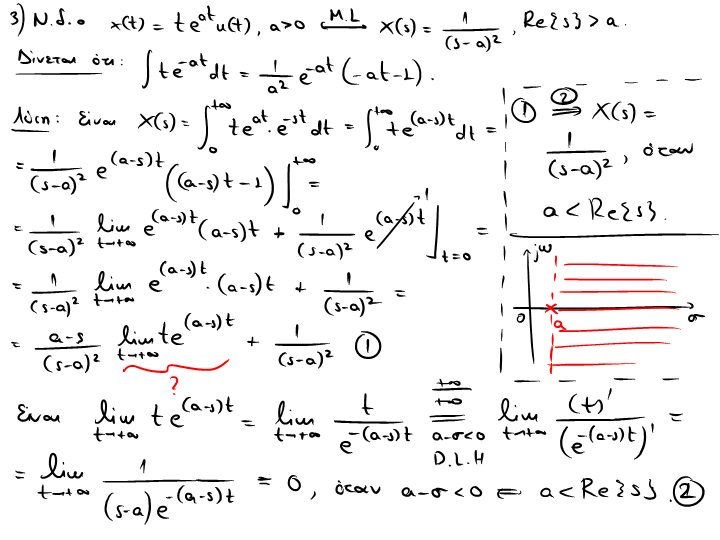 3) N.δ.ο x(t) = te^{at}u(t), a>0 ⟷^{M.L} X(s) = \frac{1}{(s-a)^2}, Re{s}>a.
Δίνεται ότι: ∫te^{-at}dt = \frac{1}{a^2} e^{-at}(-at-1).
Λύση: Είναι X(s) = ∫_0^{+∞} te^{at}·e^{-st}dt = ∫_0^{+∞} te^{(a-s)t}dt =
= \frac{1}{(s-a)^2} e^{(a-s)t}((a-s)t-1)|_0^{+∞} =
= \frac{1}{(s-a)^2} lim_{t→+∞} e^{(a-s)t}(a-s)t + \frac{1}{(s-a)^2} e^{(a-s)t} 1 |_{t=0} =
= \frac{1}{(s-a)^2} lim_{t→+∞} e^{(a-s)t}·(a-s)t + \frac{1}{(s-a)^2} =
= \frac{a-s}{(s-a)^2} lim_{t→+∞} te^{(a-s)t} + \frac{1}{(s-a)^2} ①
?
① ⟹^{②} X(s) =
\frac{1}{(s-a)^2}, όταν
a < Re{s}.
jω
0 a σ
Είναι lim_{t→+∞} te^{(a-s)t} = lim_{t→+∞} \frac{t}{e^{-(a-s)t}} =^{\frac{+∞}{+∞}}_{a-σ<0 D.L.H} lim_{t→+∞} \frac{(t)'}{(e^{-(a-s)t})'} =
= lim_{t→+∞} \frac{1}{(s-a)e^{-(a-s)t}} = 0, όταν a-σ<0 = a<Re{s}. ②